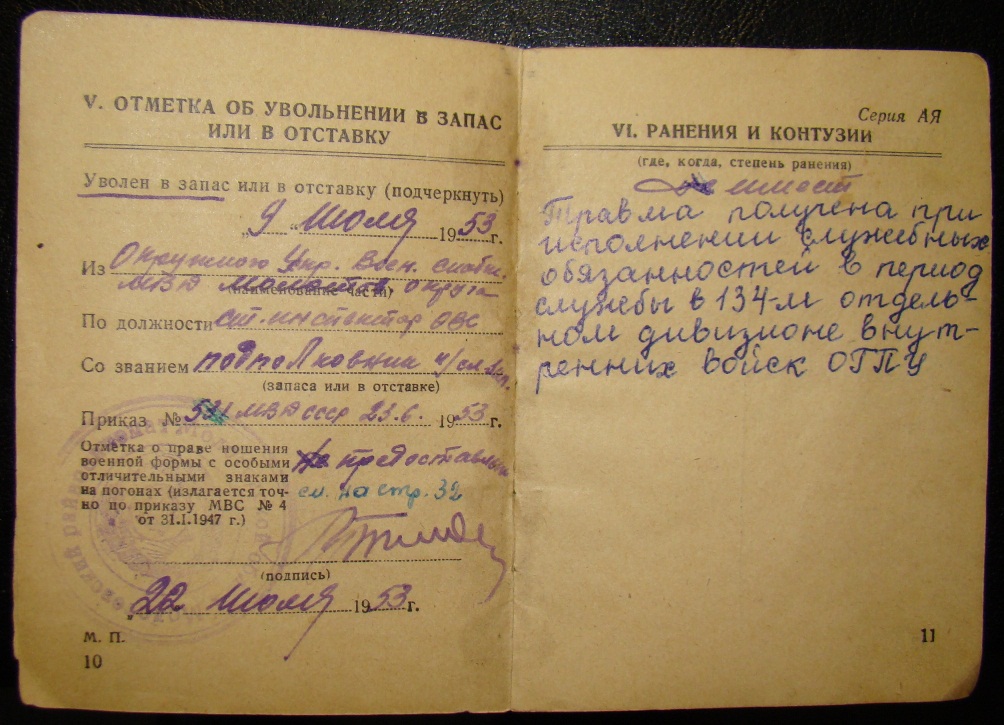 V. ОТМЕТКА ОБ УВОЛЬНЕНИИ В ЗАПАС
ИЛИ В ОТСТАВКУ
Уволен в запас или в отставку (подчеркнуть)
„9“ июля 1953 г.
Из Окружного Упр. Воен. снабж.
МВД округа
(наименование части)
По должности ст. инспектор ОВС
Со званием подполковник
(запаса или в отставке)
Приказ № МВД СССР 23.6. 1953 г.
Отметка о праве ношения
военной формы с особыми
отличительными знаками
на погонах (излагается точ-
но по приказу МВС № 4
от 31.I.1947 г.)
Не предоставлен
см. на стр. 32
(подпись)
„22“ июля 1953 г.
М. П.
10
Серия АЯ
VI. РАНЕНИЯ И КОНТУЗИИ
(где, когда, степень ранения)
Не имеет
Травма получена при
исполнении служебных
обязанностей в период
службы в 134-м отдель-
ном дивизионе внут-
ренних войск ОГПУ
11